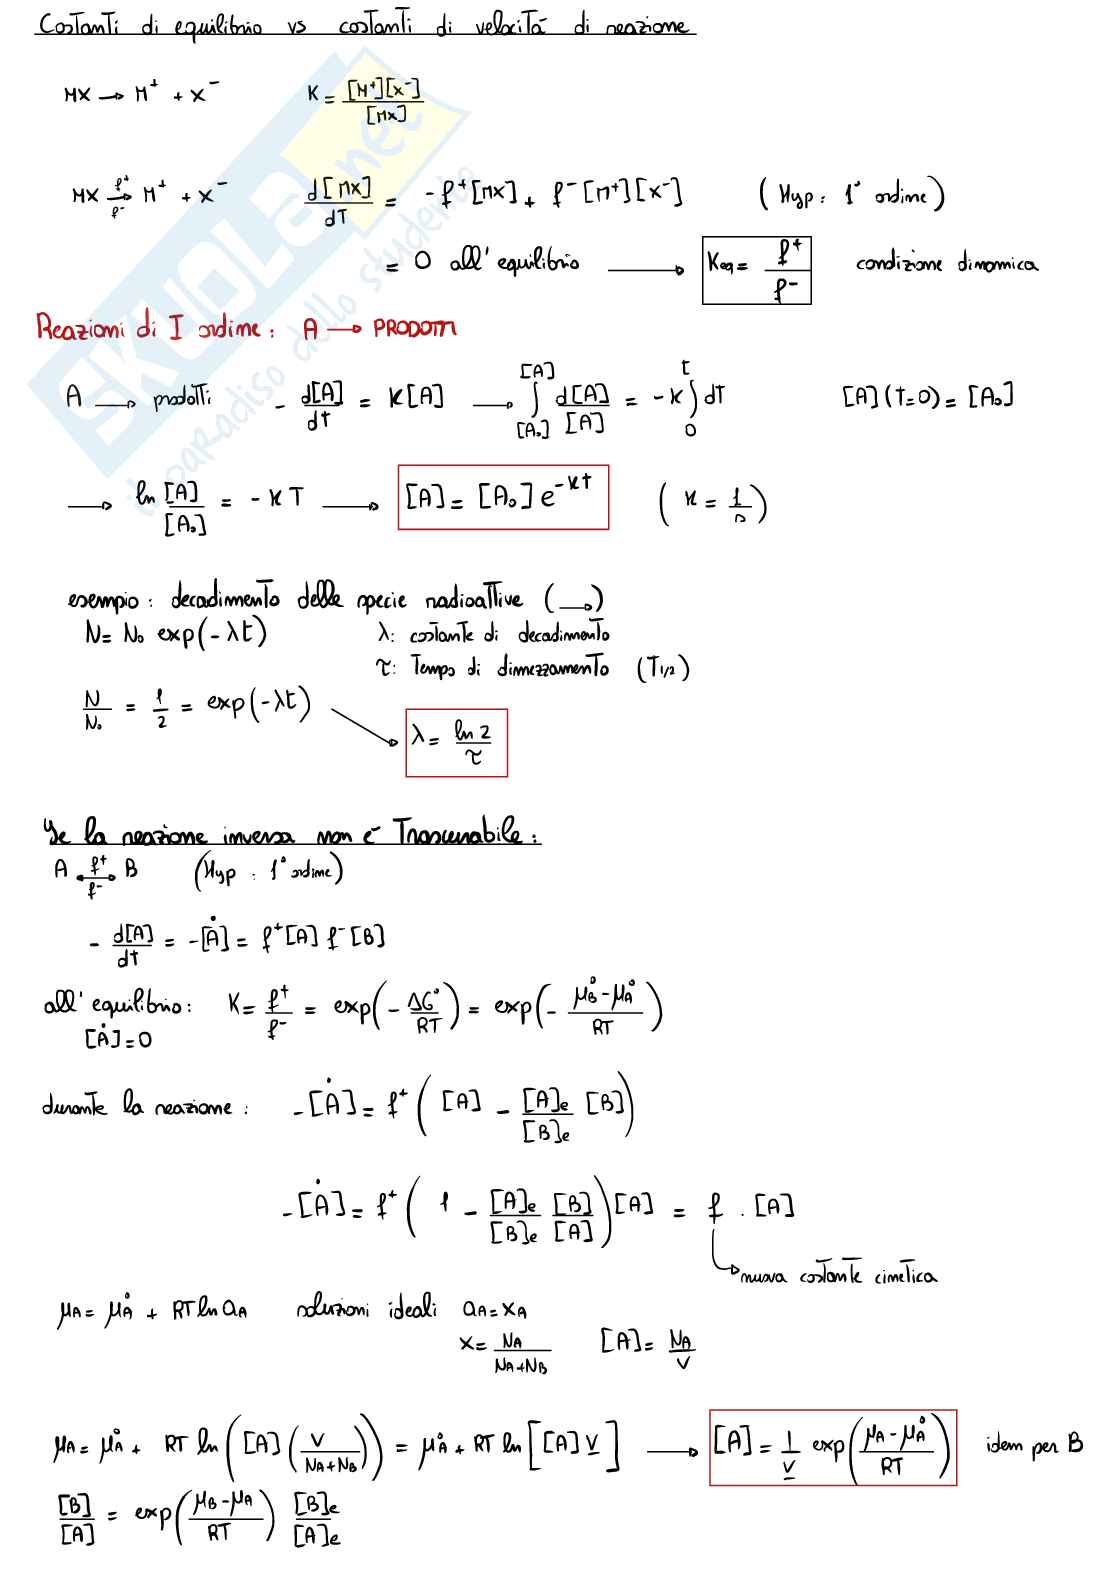 Costanti di equilibrio vs costanti di velocità di reazione
MX → M⁺ + X⁻    K = [M⁺][X⁻] / [MX]
MX ⇄ (f⁺, f⁻) M⁺ + X⁻    d[MX]/dT = - f⁺[MX] + f⁻[M⁺][X⁻]    (Hyp: 1° ordine)
= 0 all'equilibrio → Keq = f⁺/f⁻    condizione dinamica
Reazioni di I ordine: A → PRODOTTI
A → prodotti    - d[A]/dt = K[A] → ∫_[A₀]^[A] d[A]/[A] = -K ∫_0^t dT    [A](T=0) = [A₀]
→ ln [A]/[A₀] = -KT → [A] = [A₀] e^(-Kt)    (K = 1/s)
esempio: decadimento delle specie radioattive (→)
N = N₀ exp(-λt)    λ: costante di decadimento
τ: Tempo di dimezzamento (T1/2)
N/N₀ = 1/2 = exp(-λt) → λ = ln 2 / τ
Se la reazione inversa non è Trascurabile:
A ↔ (f⁺, f⁻) B    (Hyp: 1° ordine)
- d[A]/dt = -[Ȧ] = f⁺[A] f⁻[B]
all'equilibrio: K = f⁺/f⁻ = exp(- ΔG°/RT) = exp(- (μB° - μA°)/RT)
[Ȧ] = 0
durante la reazione: -[Ȧ] = f⁺ ([A] - [A]e/[B]e [B])
-[Ȧ] = f⁺ (1 - [A]e/[B]e [B]/[A]) [A] = f · [A]
nuova costante cinetica
μA = μA° + RT ln aA    soluzioni ideali aA = xA
x = NA / (NA + NB)    [A] = NA/V
μA = μA° + RT ln([A] (V/(NA + NB))) = μA° + RT ln[[A] V] → [A] = 1/V exp((μA - μA°)/RT)    idem per B
[B]/[A] = exp((μB - μA)/RT) [B]e/[A]e
SKUOLA.net
il paradiso dello studente